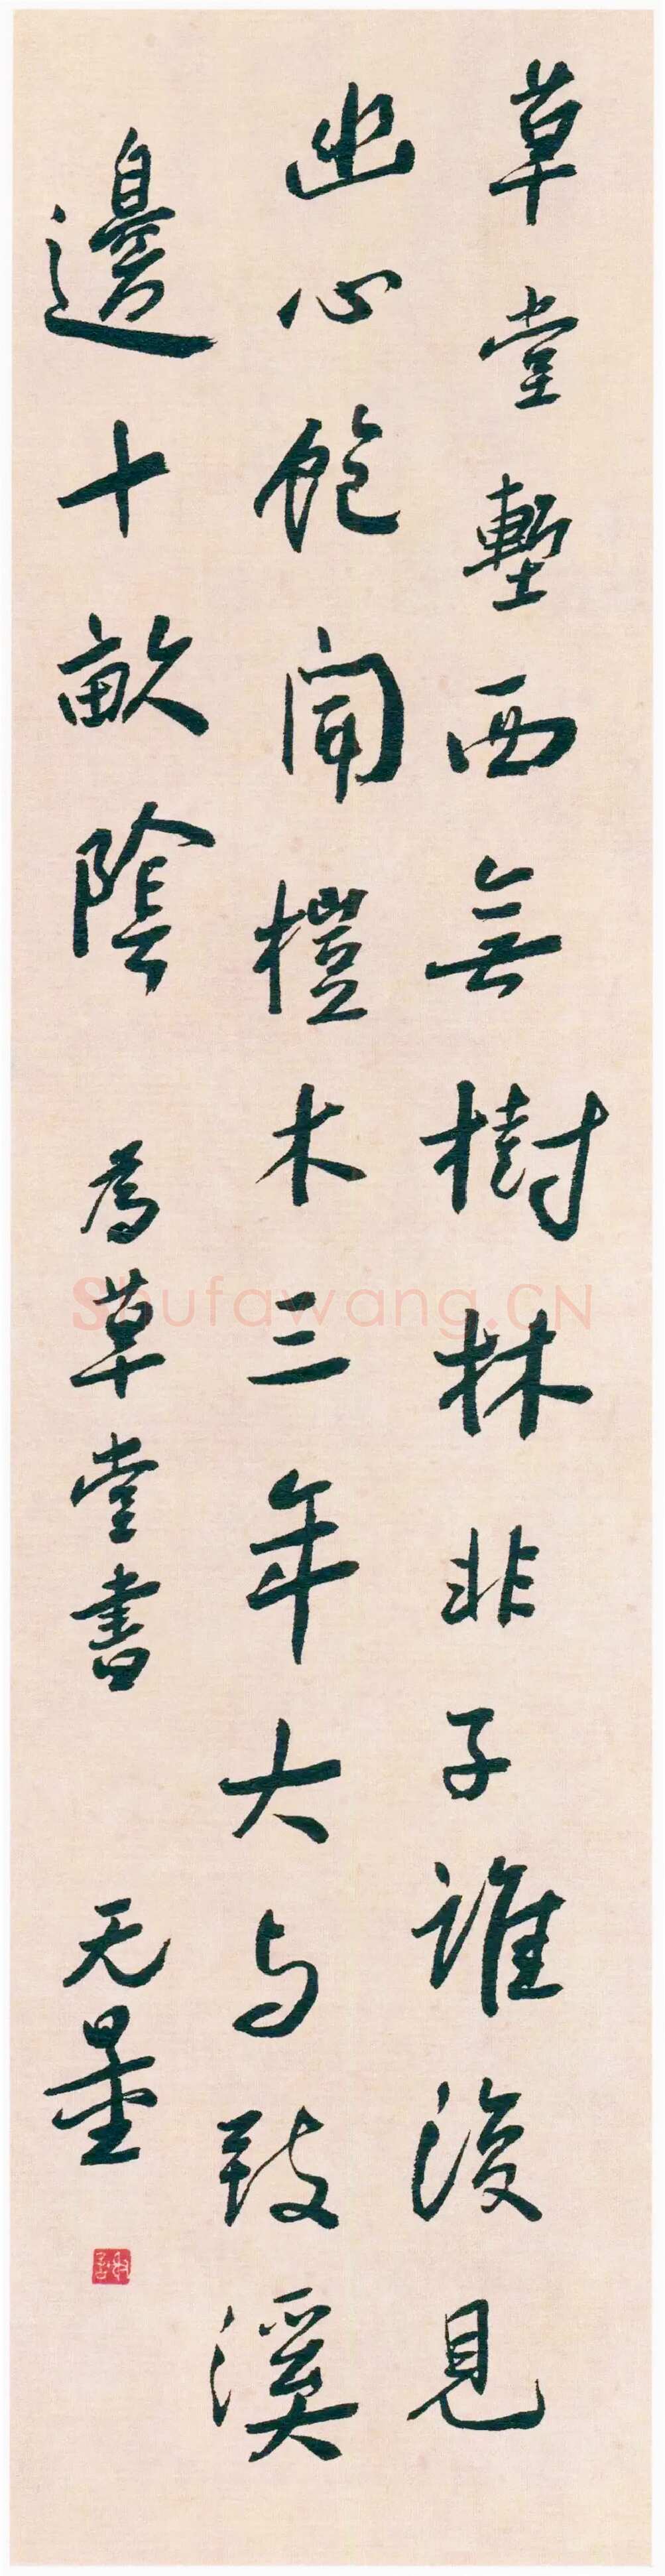 草堂塹西無樹林非子誰復見
幽心飽聞榿木三年大与致溪
邊十畝陰
為草堂書
无量
Shufawang.CN